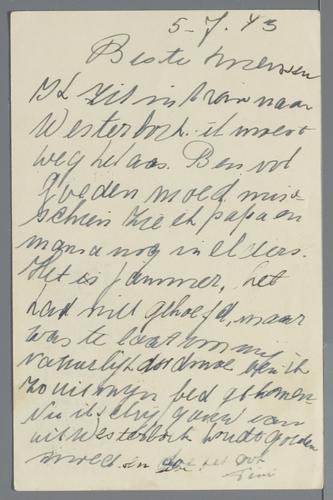 5-7.43
Beste mensen
Ik zit in trein naar
Westerbork. ik moest
weg helaas. Ben vol
goeden moed, mis-
schien zie ik papa en
mama nog in elders.
Het is jammer, het
had niet gehoefd, maar
was te laat
natuurlijk doodmoe ben ik
zo uit mijn bed gekomen
Nu ik schrijf gauw van
uit Westerbork houdt goeden
moed. en doe het ook